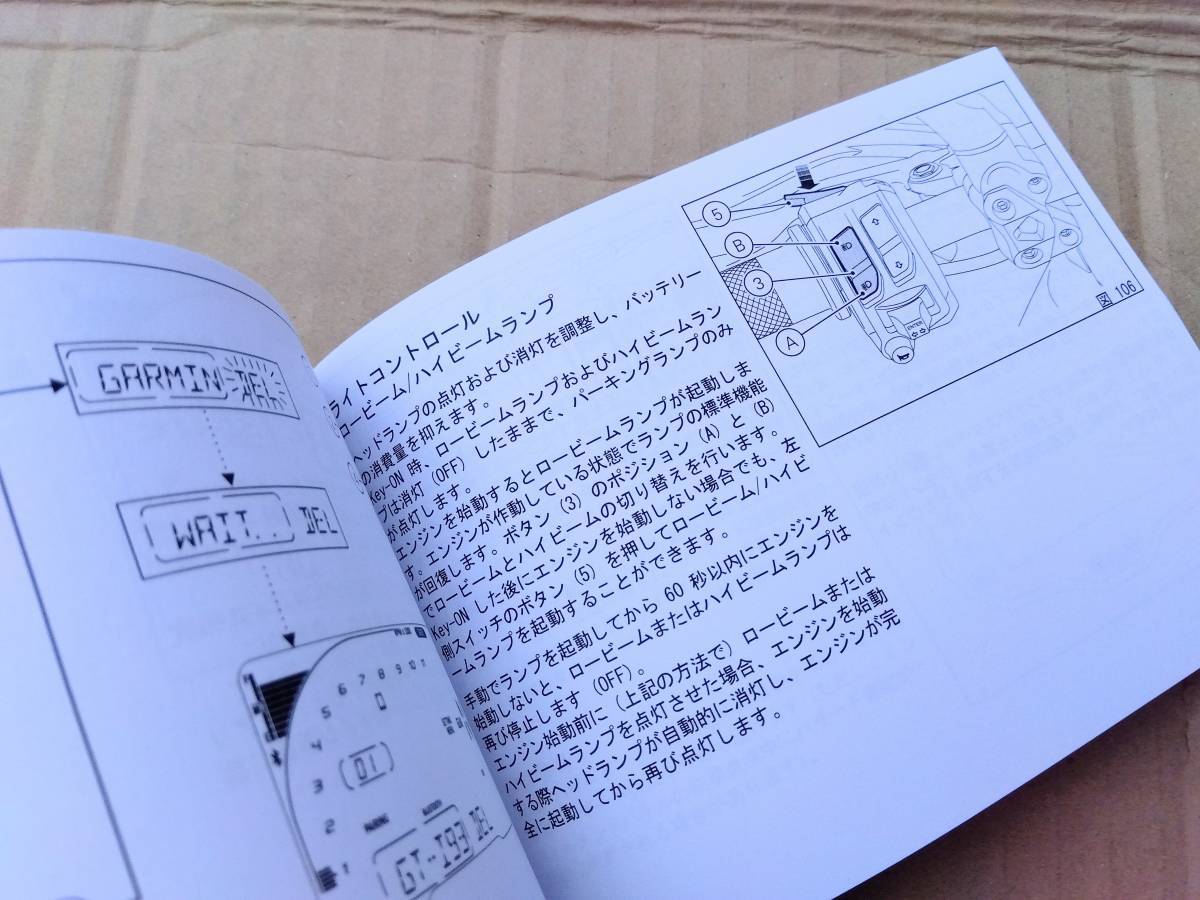 GARMIN DEL
WAIT.. DEL
5 6 7 8 9 10 11
4
3
2
1
01
GT-I93 DEL
ライトコントロール
ロービーム/ハイビームランプ
ヘッドランプの点灯および消灯を調整し、バッテリー
の消費量を抑えます。
Key-ON 時、ロービームランプおよびハイビームラン
プは消灯 (OFF) したままで、パーキングランプのみ
が点灯します。
エンジンを始動するとロービームランプが起動しま
す。エンジンが作動している状態でランプの標準機能
が回復します。ボタン (3) のポジション (A) と (B)
でロービームとハイビームの切り替えを行います。
Key-ON した後にエンジンを始動しない場合でも、左
側スイッチのボタン (5) を押してロービーム/ハイビ
ームランプを起動することができます。
手動でランプを起動してから 60 秒以内にエンジンを
始動しないと、ロービームまたはハイビームランプは
再び停止します (OFF)。
エンジン始動前に (上記の方法で) ロービームまたは
ハイビームランプを点灯させた場合、エンジンを始動
する際ヘッドランプが自動的に消灯し、エンジンが完
全に起動してから再び点灯します。
5
B
3
A
ENTER
図 106